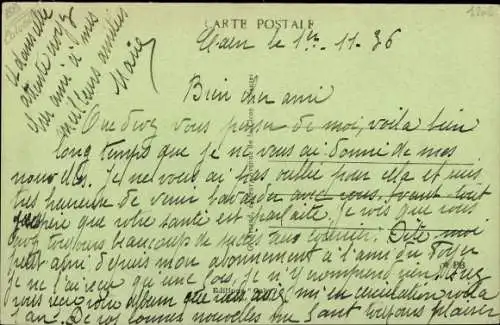 CARTE POSTALE
Caen le 1er 11-36
Bien cher ami
Que devez vous penser de moi, voila bien
long temps que je ne vous ai donné de mes
nouvelles. Je ne vous ai pas oublié pour cela et suis
très heureuse de venir bavarder avec vous. Avant tout
j'espère que votre santé est parfaite. Je vois que vous
avez toujours beaucoup de succès aux
petit ami depuis mon abonnement à l'ami du
je ne l'ai reçu que une fois. Je n'y comprend rien.
vous reçu votre album que vous aviez mis en circulation voila
1 an. De vos bonnes nouvelles me font toujours plaisir
Et dans
attente
cher ami à mes
meilleures amitiés
Marie
Editions